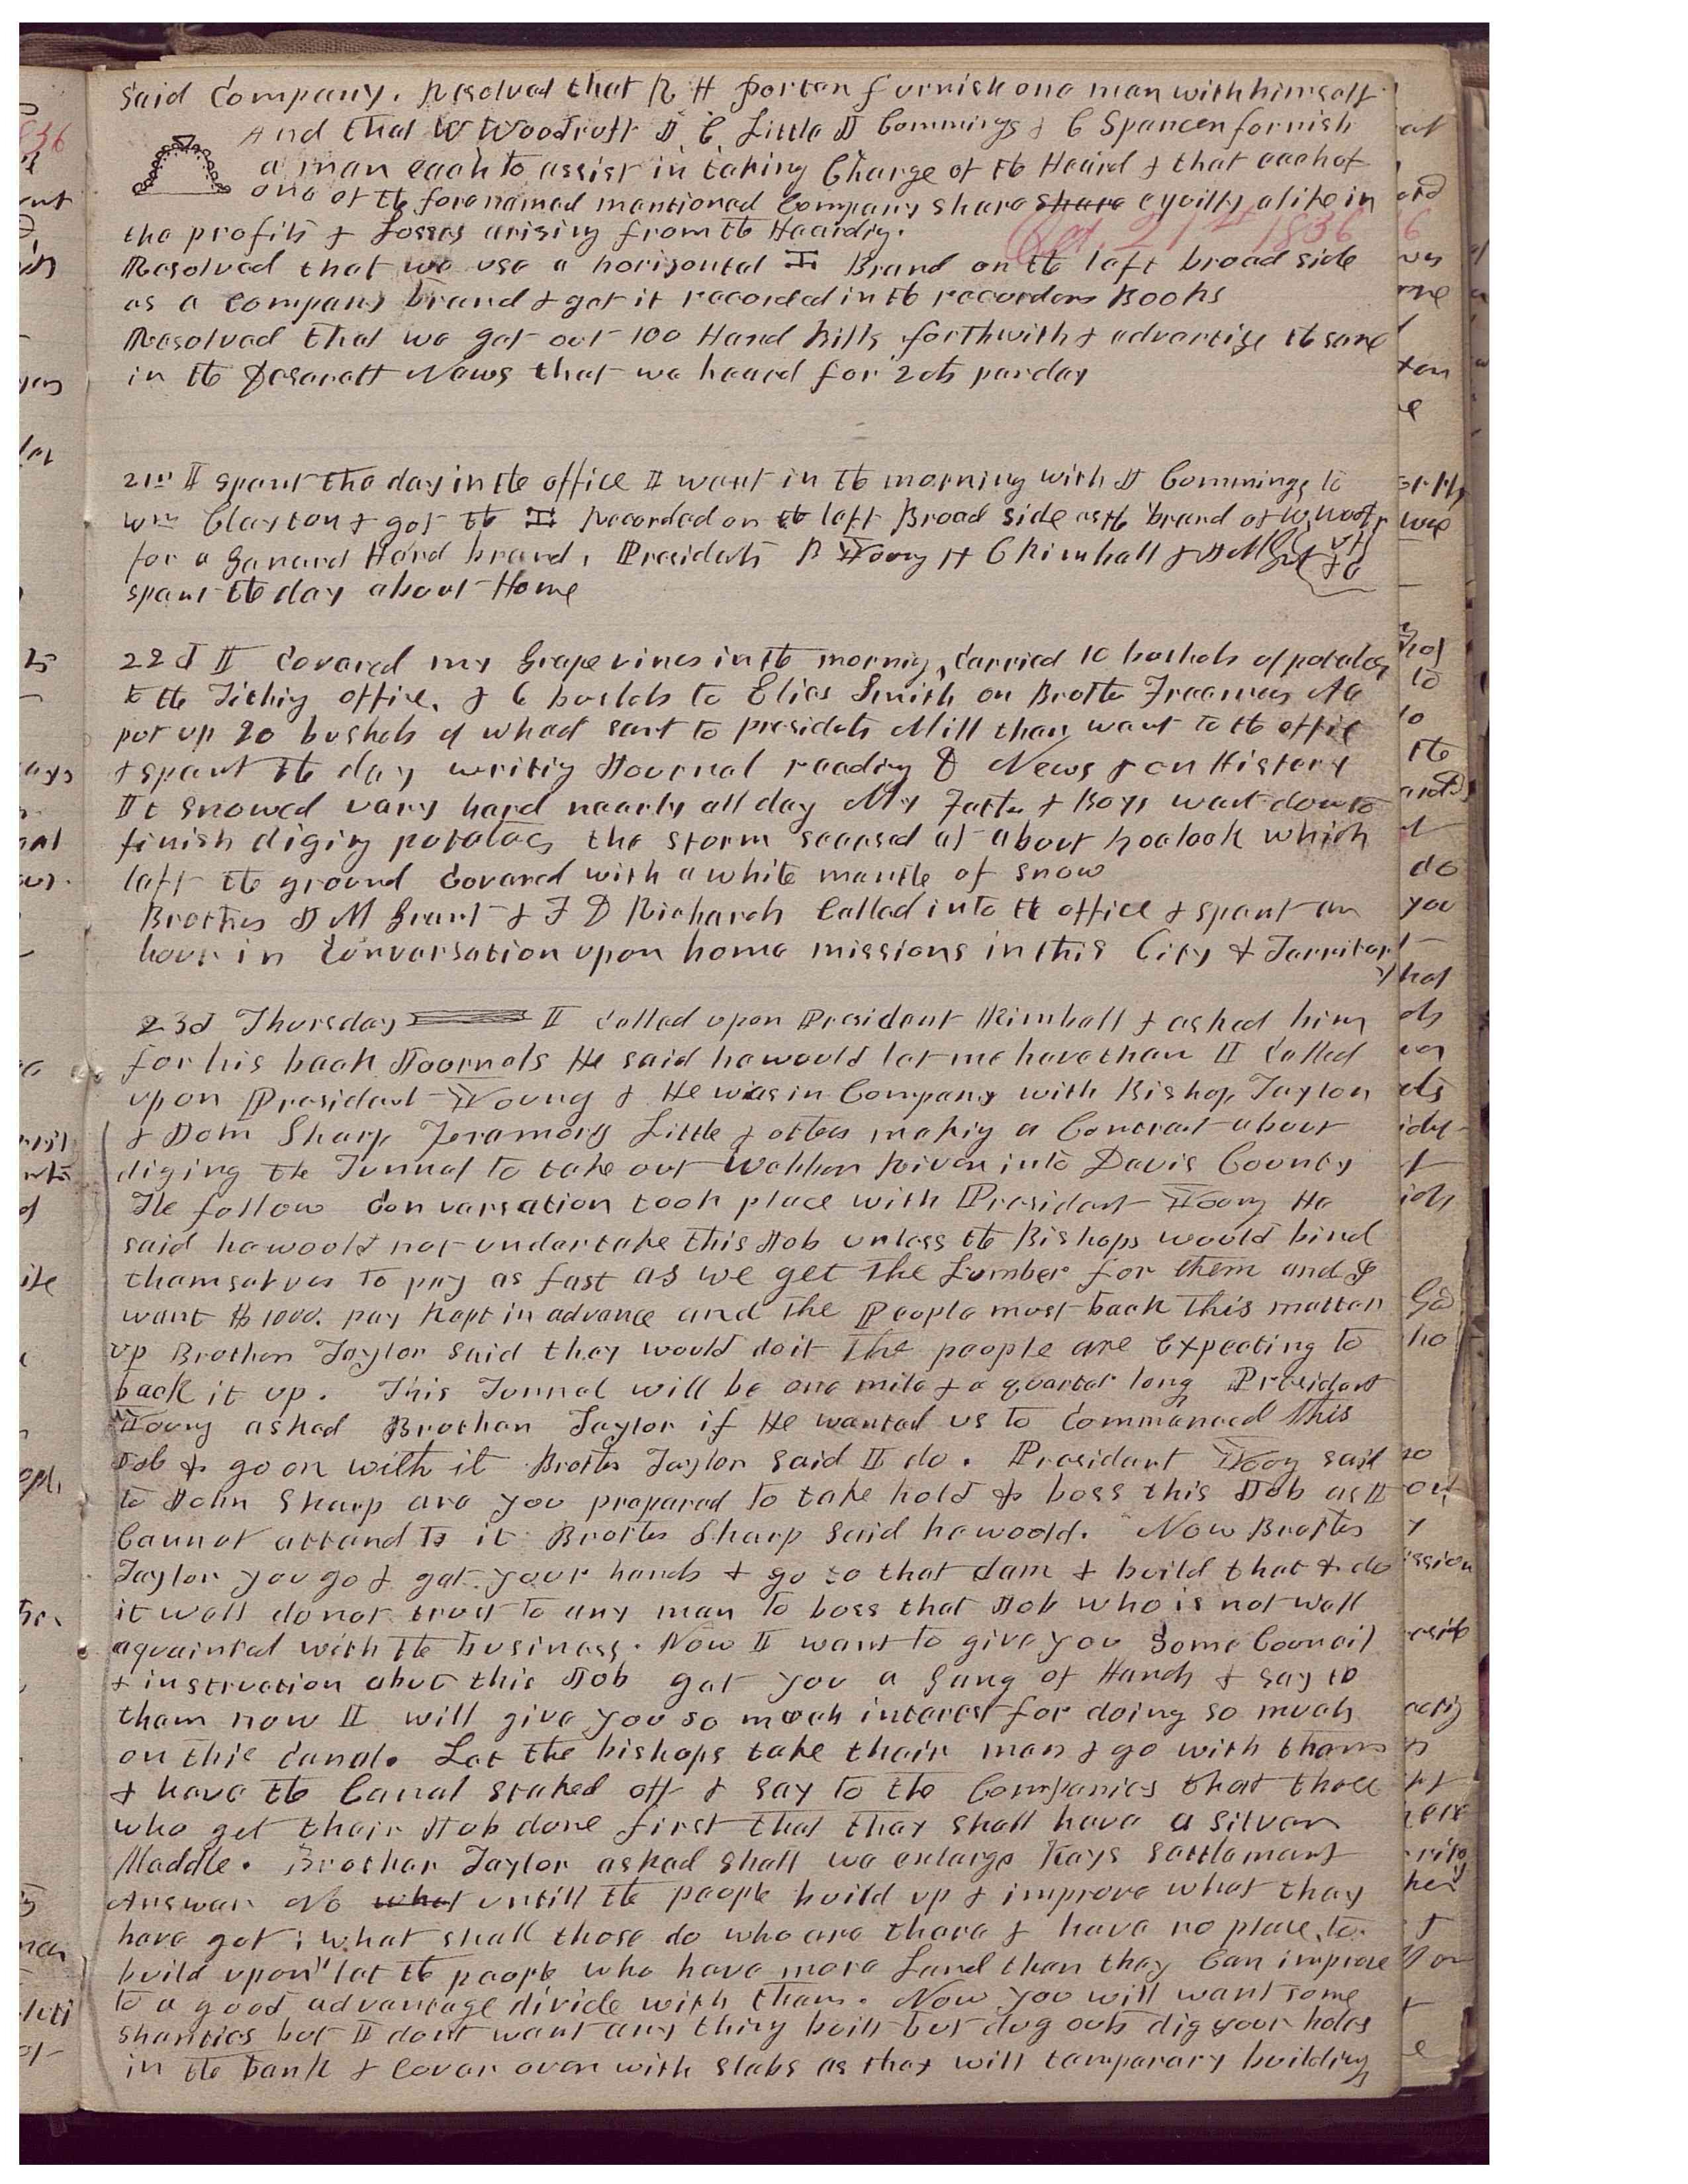 Said Company. Resolved that R H Porter furnish one man with himself
And that W Woodruff J. C. Little J Commings & C Spencer fornish
a man each to assist in taking Charge of the Heard & that each of
one of the forenamed mentioned Company share share equilly alike in
the profits & Losses arising from the Hearding.
Oct. 21st 1856
Resolved that we use a horizontal I Brand on the left broad side
as a company brand & get it recorded in the recorders Books
Resolved that we get out 100 Hand bills forthwith & advertize the same
in the Desarett News that we heard for 2cts per day
21st I spent the day in the office I went in the morning with J Commings to
Wm Clayton & got the I Recorded on the left Broad side as the brand of W. Woodruff
for a General Herd brand. Presidents B Young H C Kimball & J M Grant
spent the day about Home
22d I Covered my Grape vines in the morning, Carried 10 bushels of potatoes
to the Tithing office, & 6 bushels to Elias Smith on Brother Freemans Ac
put up 20 bushels of wheat sent to presidents Mill then went to the office
& spent the day writing Journal reading News & on History
It snowed very hard nearly all day My Father & Boys went down to
finish diging potatoes the storm seased at about oclock which
left the ground Covered with a white mantle of snow
Brothers J M Grant & F D Richards Called into the office & spent an
hour in Conversation upon home missions in this City & Territory
23d Thursday I called upon President Kimball & asked him
for his back Journals He said he would let me have them I called
upon President Young & He was in Company with Bishop Taylor
& John Sharp Feramorz Little & others making a Contract about
diging the Tunnel to take out Webber River into Davis County
The follow Conversation took place with President Young He
said he would not undertake this Job unless the Bishops would bind
themselves to pay as fast as we get the Lumber for them and I
want $1000. pay kept in advance and the People must back this matter
up Brother Taylor said they would do it The people are expecting to
back it up. This Tunnel will be one mile & a quarter long President
Young asked Brother Taylor if He wanted us to Commenced this
Job & go on with it Brother Taylor said I do. President Young said
to John Sharp are you prepared to take hold & boss this Job as I
Cannot attend to it Brother Sharp said he would. Now Brother
Taylor you go & get your hands & go to that dam & build that & do
it well do not trust to any man to boss that Job who is not well
aquainted with the business. Now I want to give you some Council
& instruction about this Job get you a gang of Hands & say to
them now I will give you so much interest for doing so much
on this Canal. Let the bishops take their men & go with them
& have the Canal staked off & say to the Companies that those
who get their Job done first that they shall have a silver
Maddle. Brother Taylor asked shall we enlarge Kays settlement
Answer No what untill the people build up & improve what they
have got; what shall those do who are there & have no place to
build upon" let the people who have more Land than they Can improve
to a good advantage divide with them. Now you will want some
shanties but I dont want any thing built but dug outs dig your holes
in the bank & Cover over with slabs as they will temporary building